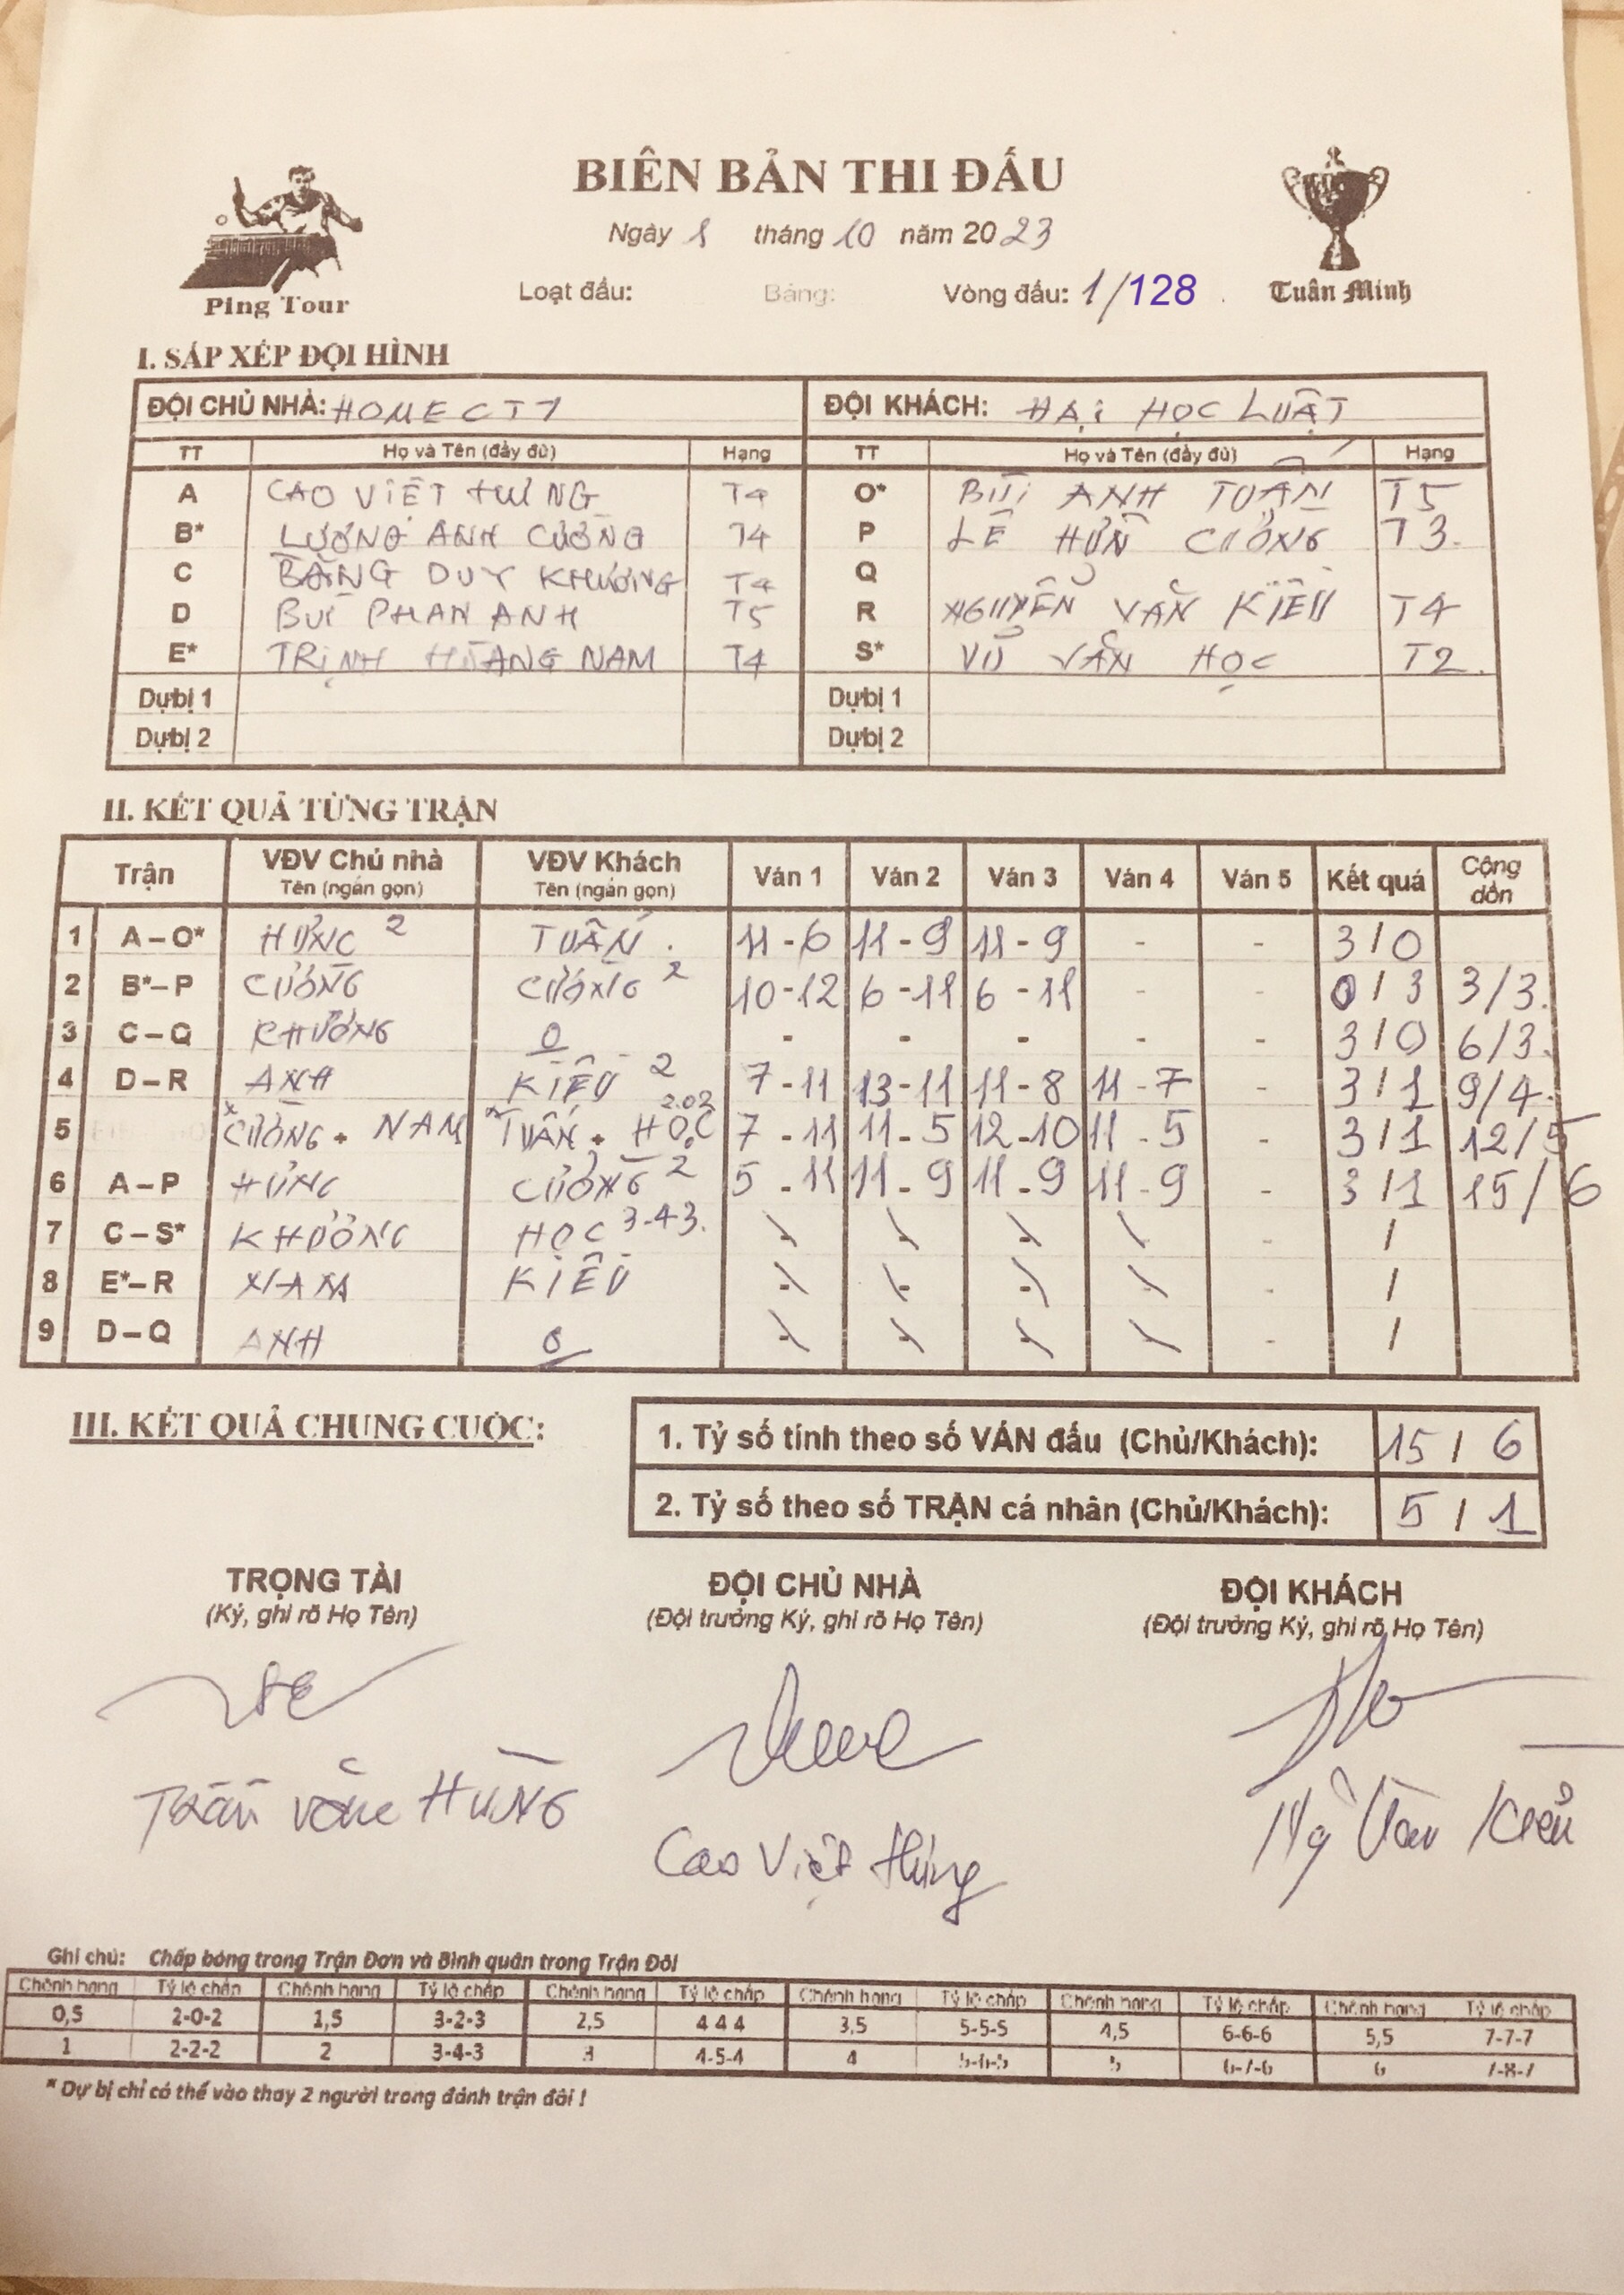 BIÊN BẢN THI ĐẤU
Ngày 1 tháng 10 năm 2023
Ping Tour
Loạt đấu: Bảng: Vòng đấu: 1/128
Tuấn Minh
I. SẮP XẾP ĐỘI HÌNH
ĐỘI CHỦ NHÀ: HOMECT1 ĐỘI KHÁCH: ĐẠI HỌC LUẬT
TT Họ và Tên (đầy đủ) Hạng TT Họ và Tên (đầy đủ) Hạng
A CAO VIỆT HƯNG T4 O* BÙI ANH TUẤN T5
B* LƯƠNG ANH CƯỜNG T4 P LÊ HỮU CƯỜNG T3.
C BẰNG DUY KHƯƠNG T4 Q
D BUI PHAN ANH T5 R NGUYỄN VĂN KIÊU T4
E* TRỊNH HOÀNG NAM T4 S* VŨ VĂN HỌC T2.
Dự bị 1 Dự bị 1
Dự bị 2 Dự bị 2
II. KẾT QUẢ TỪNG TRẬN
Trận VĐV Chủ nhà Tên (ngắn gọn) VĐV Khách Tên (ngắn gọn) Ván 1 Ván 2 Ván 3 Ván 4 Ván 5 Kết quả Cộng dồn
1 A – O* HƯNG 2 TUẤN. 11-6 11-9 11-9 - - 3/0
2 B* – P CƯỜNG CƯỜNG 2 10-12 6-11 6-11 - - 0/3 3/3.
3 C – Q KHƯƠNG 0 - - - - - 3/0 6/3.
4 D – R ANH KIÊU 2 7-11 13-11 11-8 11-7 - 3/1 9/4.
5 CƯỜNG + NAM TUẤN + HỌC 2.02 7-11 11-5 12-10 11-5 - 3/1 12/5
6 A – P HƯNG CƯỜNG 2 5-11 11-9 11-9 11-9 - 3/1 15/6
7 C – S* KHƯƠNG HỌC 3-43. - - - - - /
8 E* – R NAM KIÊU - - - - - /
9 D – Q ANH 0 - - - - - /
III. KẾT QUẢ CHUNG CUỘC:
1. Tỷ số tính theo số VÁN đấu (Chủ/Khách): 15 / 6
2. Tỷ số theo số TRẬN cá nhân (Chủ/Khách): 5 / 1
TRỌNG TÀI ĐỘI CHỦ NHÀ ĐỘI KHÁCH
(Ký, ghi rõ Họ Tên) (Đội trưởng Ký, ghi rõ Họ Tên) (Đội trưởng Ký, ghi rõ Họ Tên)
Trần Văn HÙNG Cao Việt Hưng Ng Văn Kiêu
Ghi chú: Chấp bóng trong Trận Đơn và Bình quân trong Trận Đôi
Chênh hạng Tỷ lệ chấp Chênh hạng Tỷ lệ chấp Chênh hạng Tỷ lệ chấp Chênh hạng Tỷ lệ chấp Chênh hạng Tỷ lệ chấp Chênh hạng Tỷ lệ chấp
0,5 2-0-2 1,5 3-2-3 2,5 4 4 4 3,5 5-5-5 4,5 6-6-6 5,5 7-7-7
1 2-2-2 2 3-4-3 3 4-5-4 4 5-6-5 5 6-7-6 6 7-8-7
* Dự bị chỉ có thể vào thay 2 người trong đánh trận đôi !